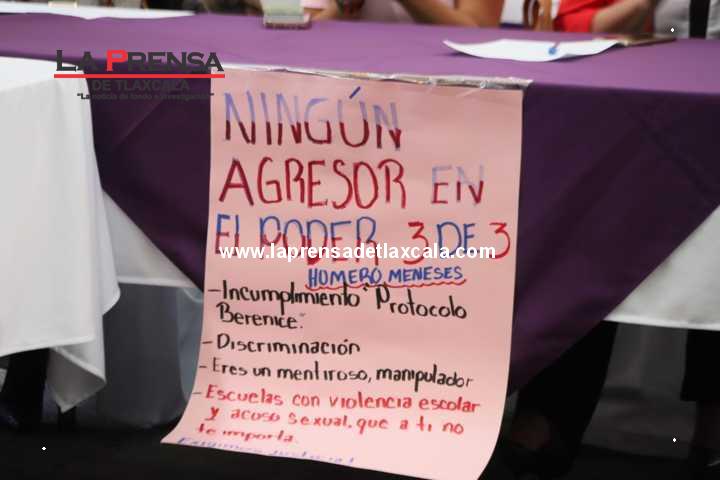 LA PRENSA
DE TLAXCALA
"La noticia de fondo e investigación"
NINGÚN
AGRESOR EN
EL PODER 3 DE 3
www.laprensadetlaxcala.com
HOMERO MENESES
-Incumplimiento "Protocolo
Berenice".
-Discriminación
-Eres un mentiroso, manipulador
-Escuelas con violencia escolar
y acoso sexual, que a ti no
te importa.